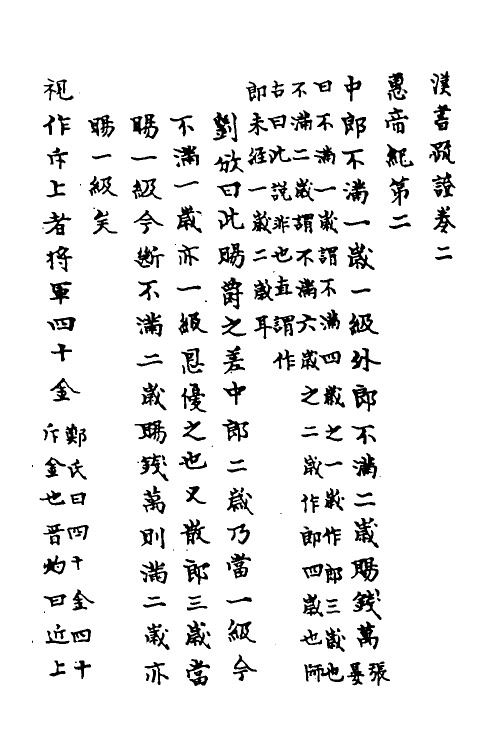 漢書疏證卷二
惠帝紀第二
中郎不滿一歲一級外郎不滿二歲賜錢萬張晏
曰不滿一歲謂不滿四歲之一歲作郎三歲也
不滿二歲謂不滿六歲之二歲作郎四歲也師
古曰此說非也直謂作
郎未經一歲二歲耳
劉攽曰此賜爵之差中郎二歲乃當一級今
不滿一歲亦一級恩優之也又散郎三歲當
賜一級今斷不滿二歲賜錢萬則滿二歲亦
賜一級矣
視作斥上者將軍四十金鄭氏曰四十金四十
斤金也晉灼曰近上